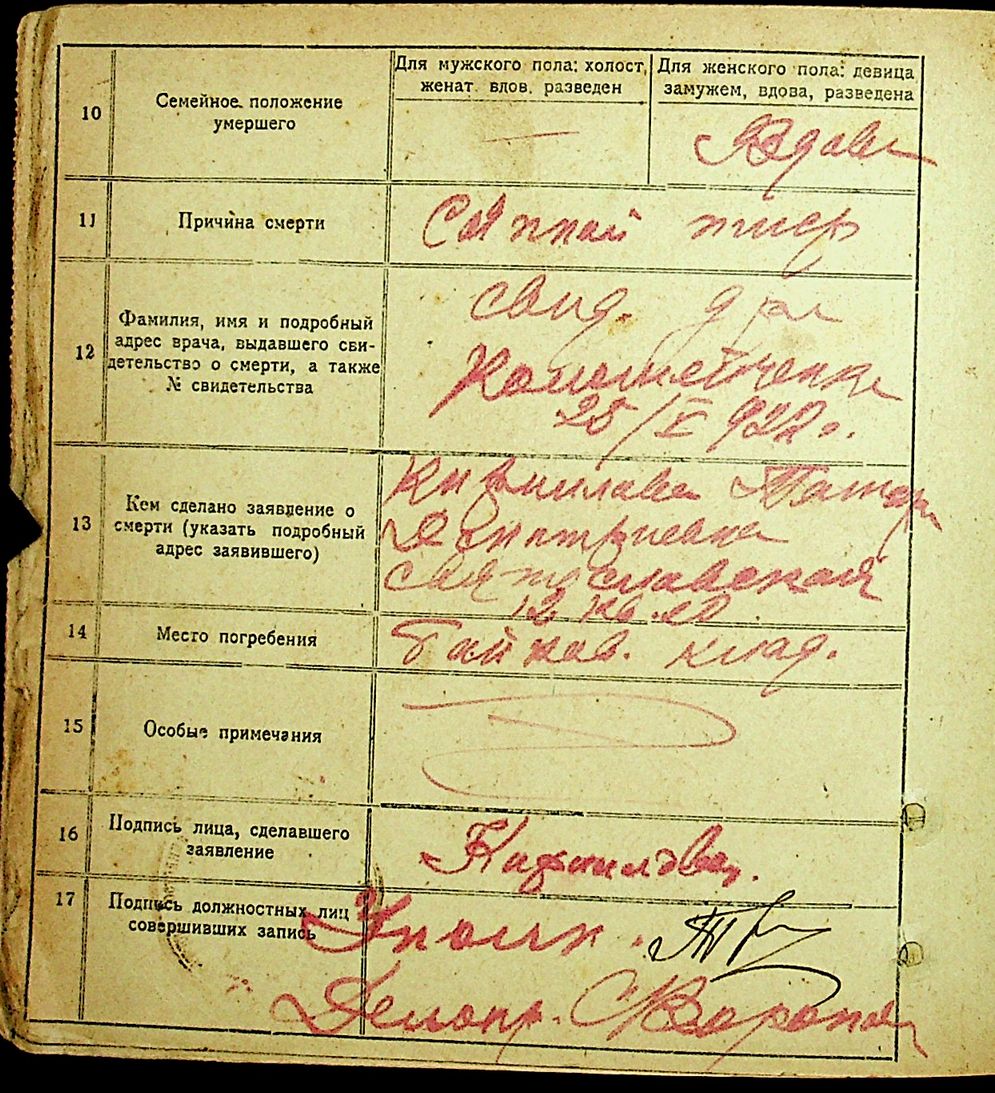 10
Семейное положение
умершего
Для мужского пола: холост,
женат. вдов. разведен
—
Для женского пола: девица
замужем, вдова, разведена
Вдова
11
Причина смерти
Сыпной тиф
12
Фамилия, имя и подробный
адрес врача, выдавшего сви-
детельство о смерти, а также
№ свидетельства
свид. д-ра
25/V 922 г.
13
Кем сделано заявление о
смерти (указать подробный
адрес заявившего)
Дмитриевна
Святославская
12 кв. 20
14
Место погребения
Байков. клад.
15
Особые примечания
16
Подпись лица, сделавшего
заявление
17
Подпись должностных лиц
совершивших запись
Уполн.
Делопр.